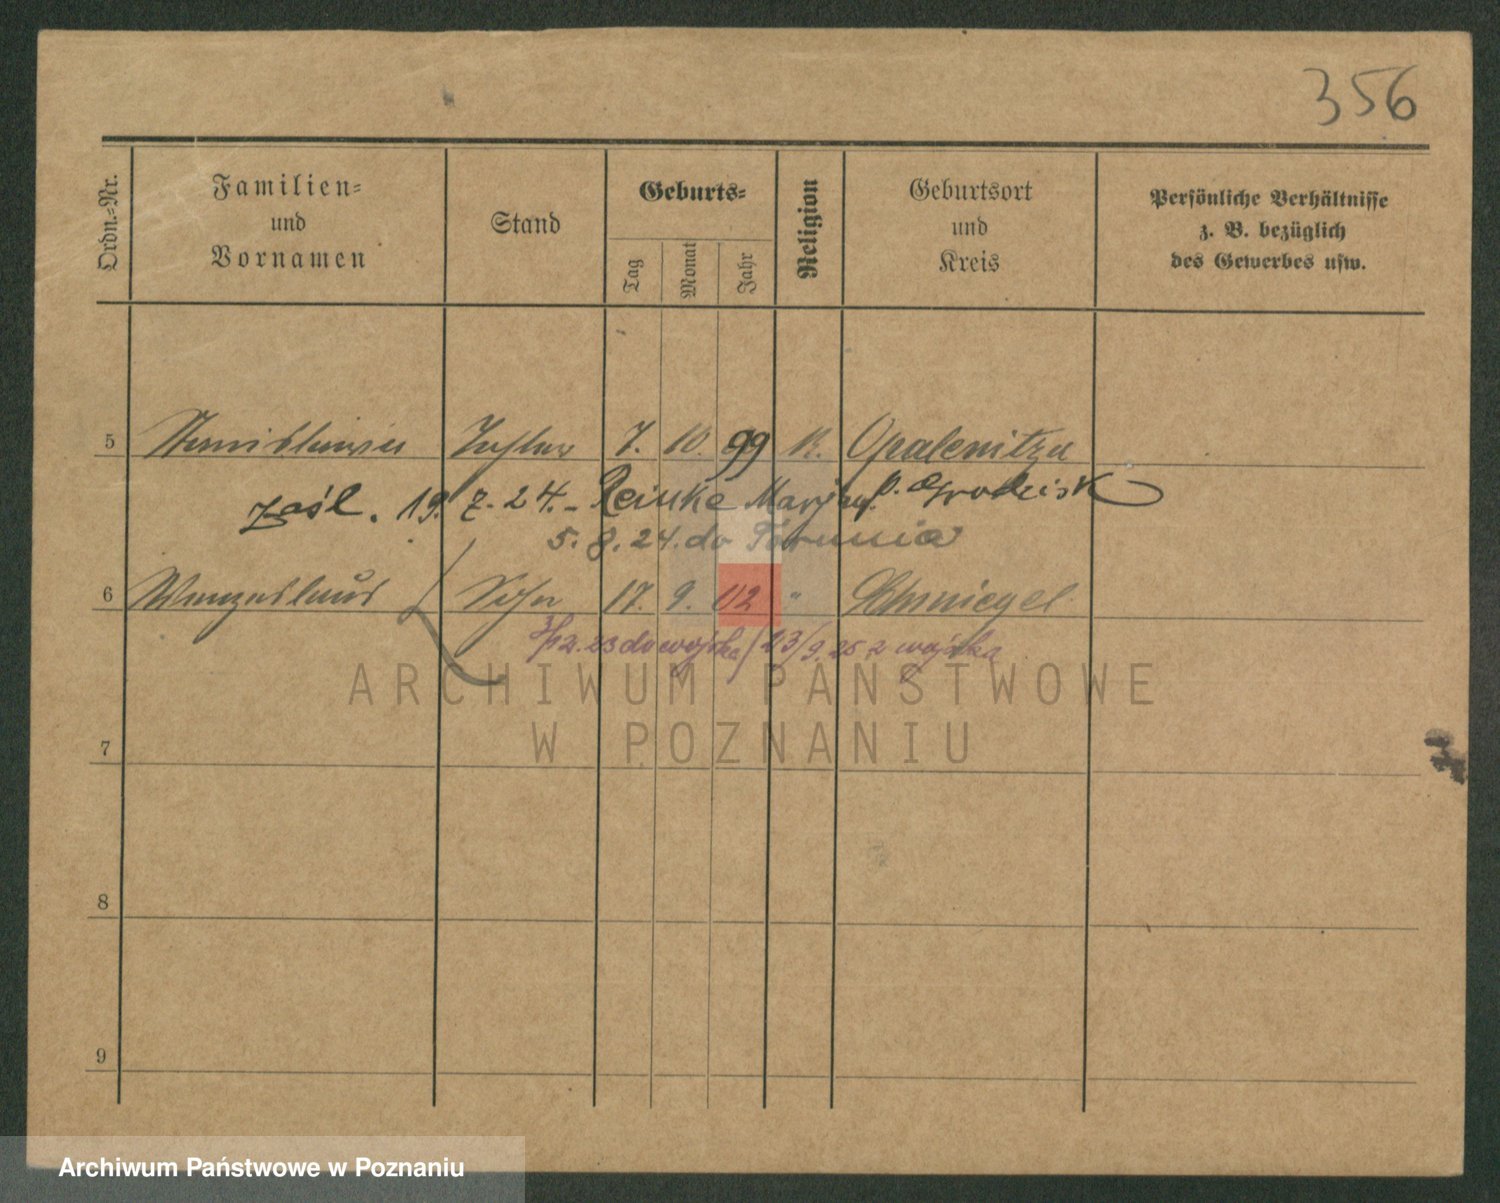 356
Ordn.-Nr. Familien- und Vornamen Stand Geburts- Tag Monat Jahr Religion Geburtsort und Kreis Persönliche Verhältnisse z. B. bezüglich des Gewerbes usw.
5 Stanislawa Tochter 7. 10. 99 K. Opalenitza
zaśl. 19. 7. 24. - Reiske Marjan p. Grodzisk
5. 8. 24. do Torunia
6 Wenzeslaus Sohn 17. 9. 02 " Schmiegel
23 do wojska / 23/9. 25 z wojska
ARCHIWUM PAŃSTWOWE
W POZNANIU
7
8
9
Archiwum Państwowe w Poznaniu